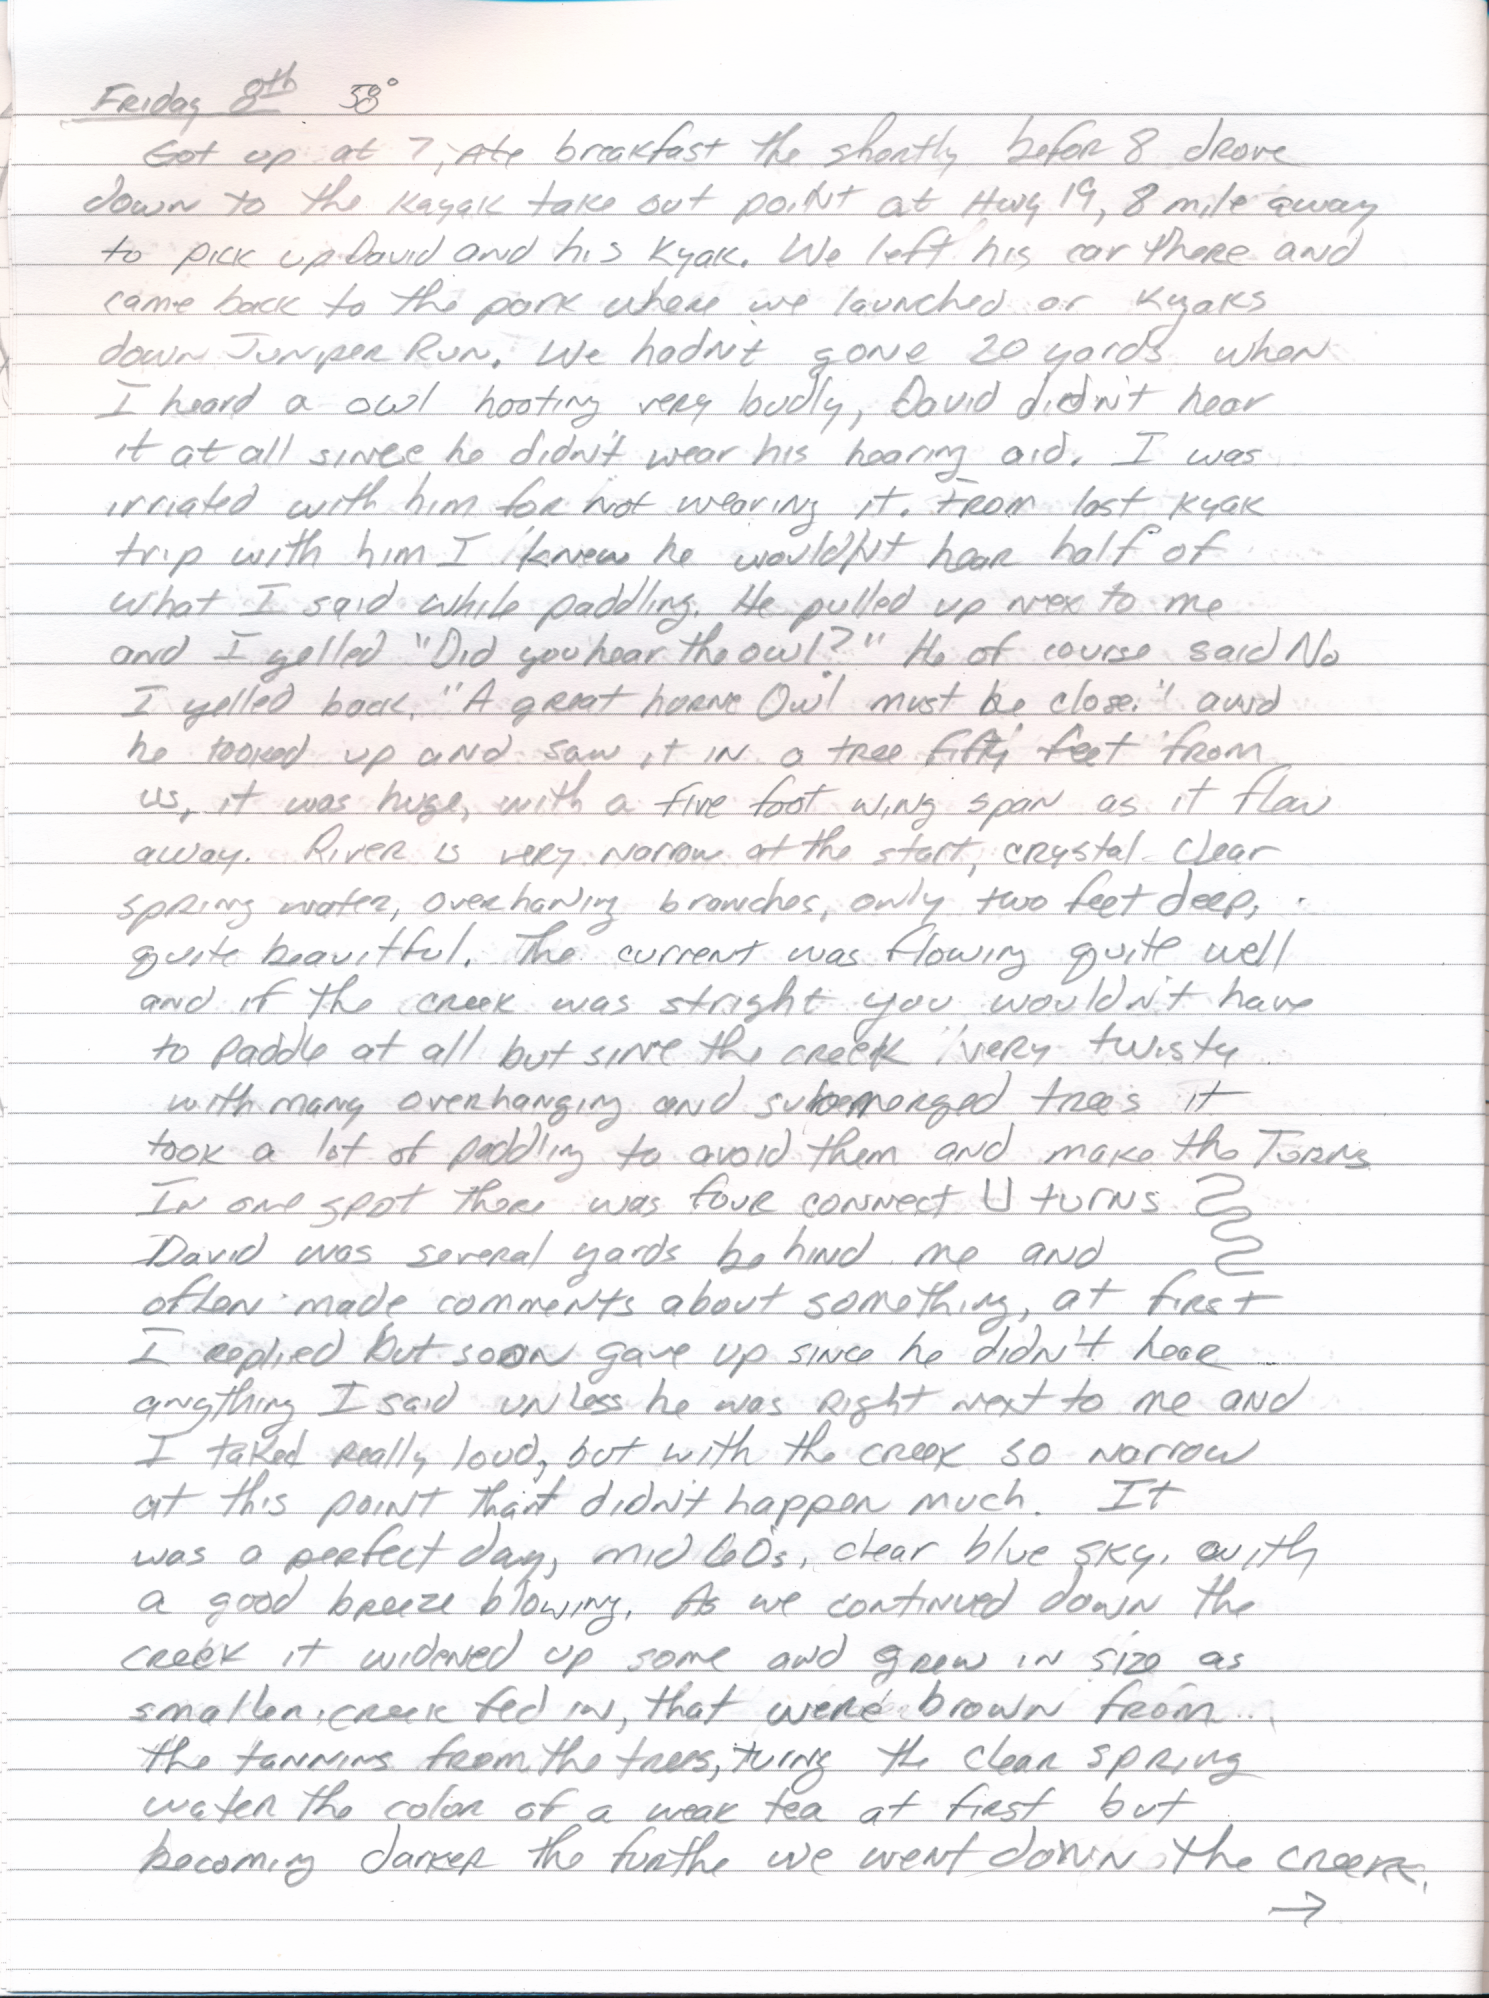 Friday 8th 38°
Got up at 7, Ate breakfast the shortly befor 8 drove
down to the Kayak take out point at Hwy 19, 8 mile away
to pick up David and his Kyak. We left his car there and
came back to the park where we launched or Kyaks
down Juniper Run. We hadn't gone 20 yards when
I heard a owl hooting very loudly, David didn't hear
it at all since he didn't wear his hearing aid. I was
irriated with him for not wearing it. From last Kyak
trip with him I knew he wouldn't hear half of
what I said while paddling. He pulled up nex to me
and I yelled "Did you hear the owl?" He of course said No
I yelled back, "A great horne Owl must be close." and
he looked up and saw it in a tree fifty feet from
us, it was huge, with a five foot wing span as it flew
away. River is very narrow at the start, crystal clear
spring water, overhaning branches, only two feet deep,
quite beautful. The current was flowing quite well
and if the creek was stright you wouldn't have
to paddle at all but sinve the creek very twisty
with many overhanging and submerged trees it
took a lot of paddling to avoid them and make the Turns
In one spot there was four connect U turns
David was several yards behind me and
often made comments about something, at first
I replied but soon gave up since he didn't hear
angthing I said unless he was right next to me and
I taked really loud, but with the creek so narrow
at this point that didn't happen much. It
was a perfect day, mid 60s, clear blue sky, with
a good breeze blowing. As we continued down the
creek it widened up some and grew in size as
smaller creek fed in, that were brown from
the tannins from the trees, turing the clear spring
water the color of a weak tea at first but
becoming darker the furthe we went down the creek.
→